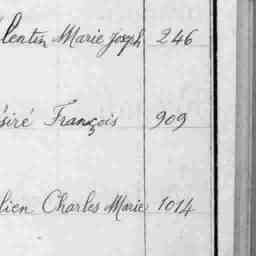 lentin Marie Joseph 246
siré François 909
lien Charles Marie 1014